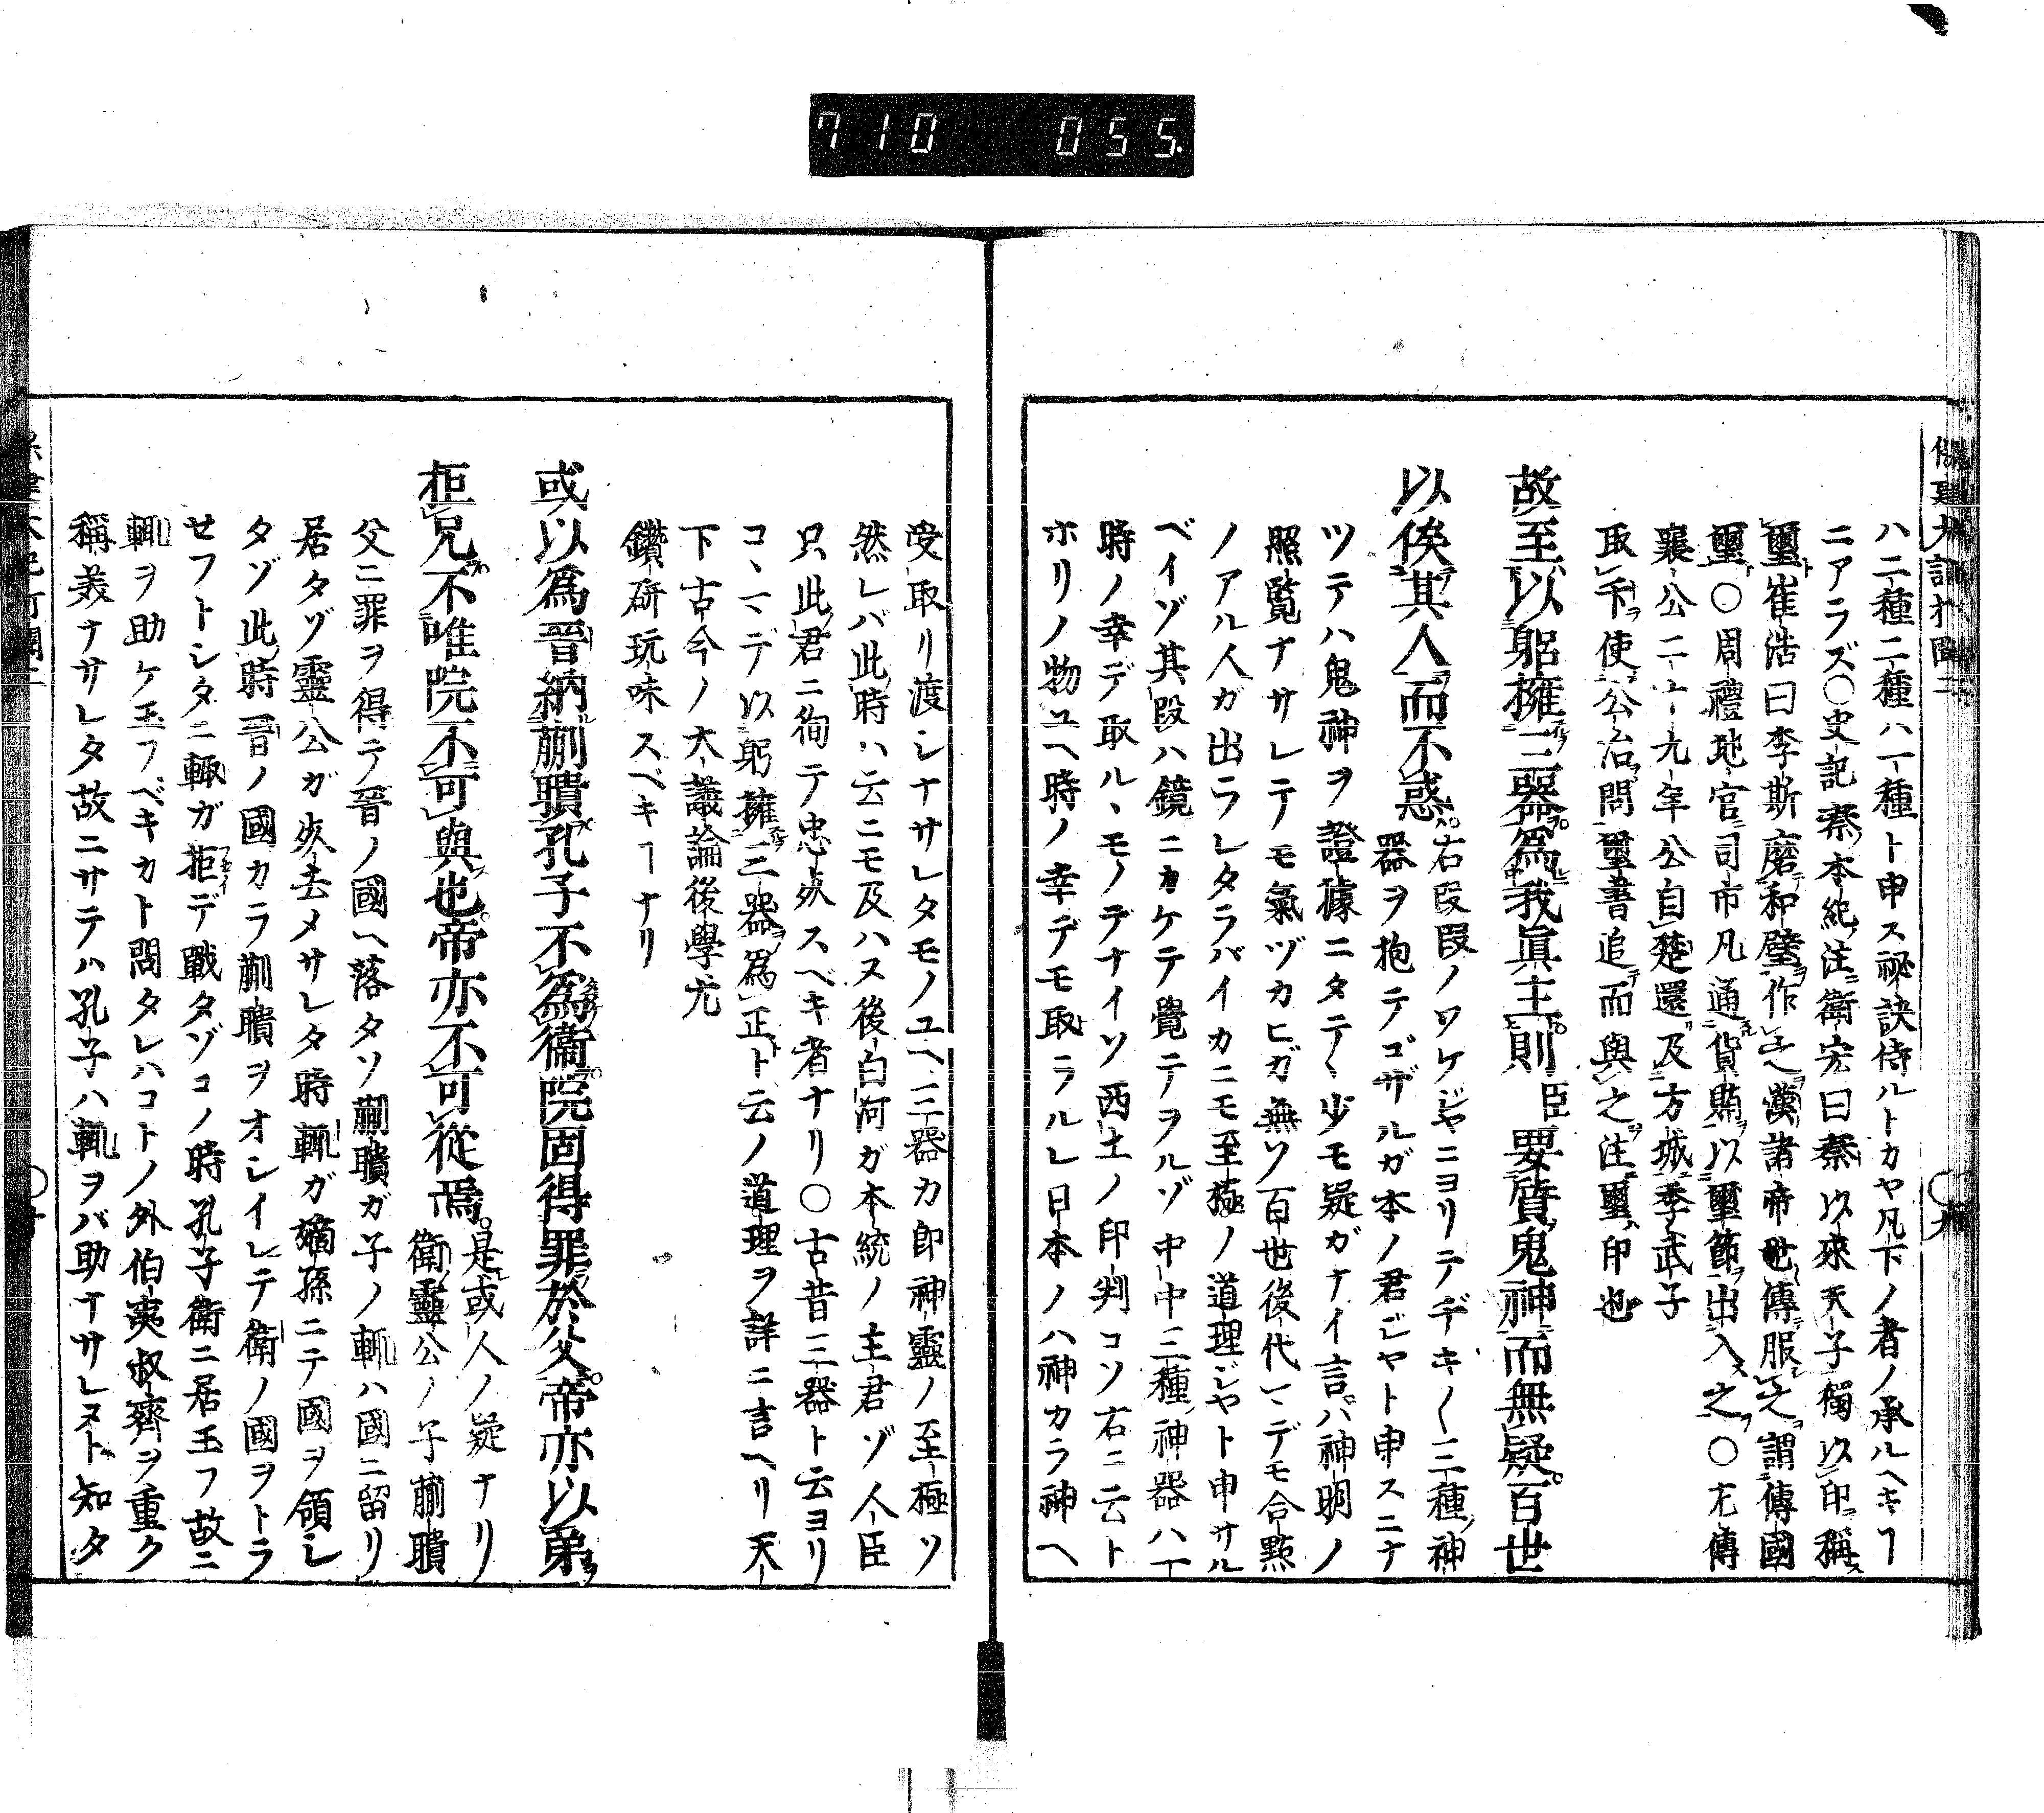 710 055.
ハ二種二種ハ一種ト申ス祕訣侍ルトカヤ凡下ノ者ノ承ルヘキヿ
ニアラズ〇史記秦本紀注衛宏曰秦以來天子獨以印稱
璽崔浩曰李斯磨和璧作之漢諸帝世傳服之謂傳國
璽〇周禮地官司市凡通貨賄以璽節出入之〇左傳
襄公二十九年公自楚還及方城季武子
取卞使公冶問璽書追而與之注璽印也
故至以躬擁三器爲我眞主則臣要質鬼神而無疑百世
以俟其人而不惑右段段ノワケジヤニヨリテヂキ〳〵三種ノ神
器ヲ抱テゴザルガ本ノ君ジヤト申スニナ
ツテハ鬼神ヲ證據ニタテヽ少モ疑ガナイ言バ神明ノ
照覽ナサレテモ氣ヅカヒガ無ソ百世後代マデモ合點
ノアル人ガ出ラレタラバイカニモ至極ノ道理ジヤト申サル
ベイゾ其段ハ鏡ニカケテ覺テヲルゾ中中三種ノ神器ハ一
時ノ幸デ取ルヽモノデナイソ西土ノ印判コソ右ニ云ト
ホリノ物ユヘ時ノ幸デモ取ラルレ日本ノハ神カラ神ヘ
受取リ渡シナサレタモノユヘ三器カ即神靈ノ至極ソ
然レバ此時ハ云ニモ及ハヌ後白河ガ本統ノ主君ゾ人臣
只此君ニ徇テ忠死スベキ者ナリ〇古昔三器ト云ヨリ
コヽマデ以躬擁三器爲正ト云ノ道理ヲ詳ニ言ヘリ天
下古今ノ大議論後學尤
鑽研玩味スベキヿナリ
或以爲晉納蒯聵孔子不爲衞院固得罪於父帝亦以弟
拒兄不唯院不可與也帝亦不可從焉是或人ノ疑ナリ
衛靈公ノ子蒯聵
父ニ罪ヲ得テ晉ノ國ヘ落タソ蒯聵ガ子ノ輒ハ國ニ留リ
居タゾ靈公ガ死去メサレタ時輒ガ嫡孫ニテ國ヲ領シ
タゾ此時晉ノ國カラ蒯聵ヲオシイレテ衛ノ國ヲトラ
セフトシタニ輒ガ拒デ戰タゾコノ時孔子衛ニ居玉フ故ニ
輒ヲ助ケ玉フベキカト問タレハコトノ外伯夷叔齊ヲ重ク
稱美ナサレタ故ニサテハ孔子ハ輒ヲバ助ナサレヌト知タ